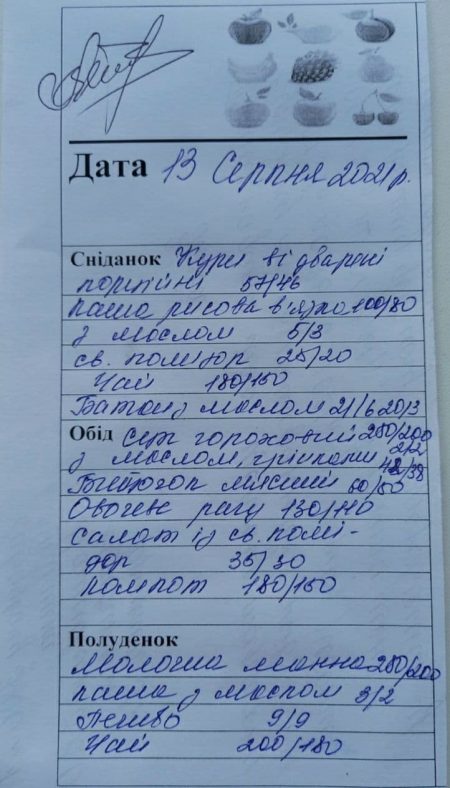 Дата 13 Серпня 2021 р.
Сніданок Кури відварені
порційні 57/46
каша рисова в'язка 100/80
з маслом 5/3
св. помідор 25/20
Чай 180/150
Батон з маслом
Обід Суп гороховий 250/200
з маслом, грінками 2/2
Биточок м'ясний 60/50
Овочев рагу 130/110
салат із св. помі-
дор 35/30
компот 180/150
Полуденок
Молочна манна 250/200
каша з маслом 3/2
Печиво 9/9
Чай 200/180